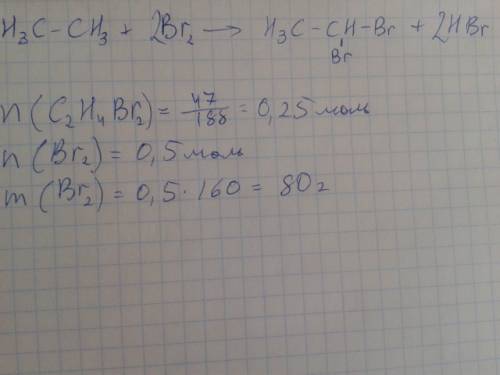 H₃C-CH₃ + 2Br₂ → H₃C-CH-Br + 2HBr
Br
n(C₂H₄Br₂) = 47/188 = 0,25 моль
n(Br₂) = 0,5 моль
m(Br₂) = 0,5·160 = 80г